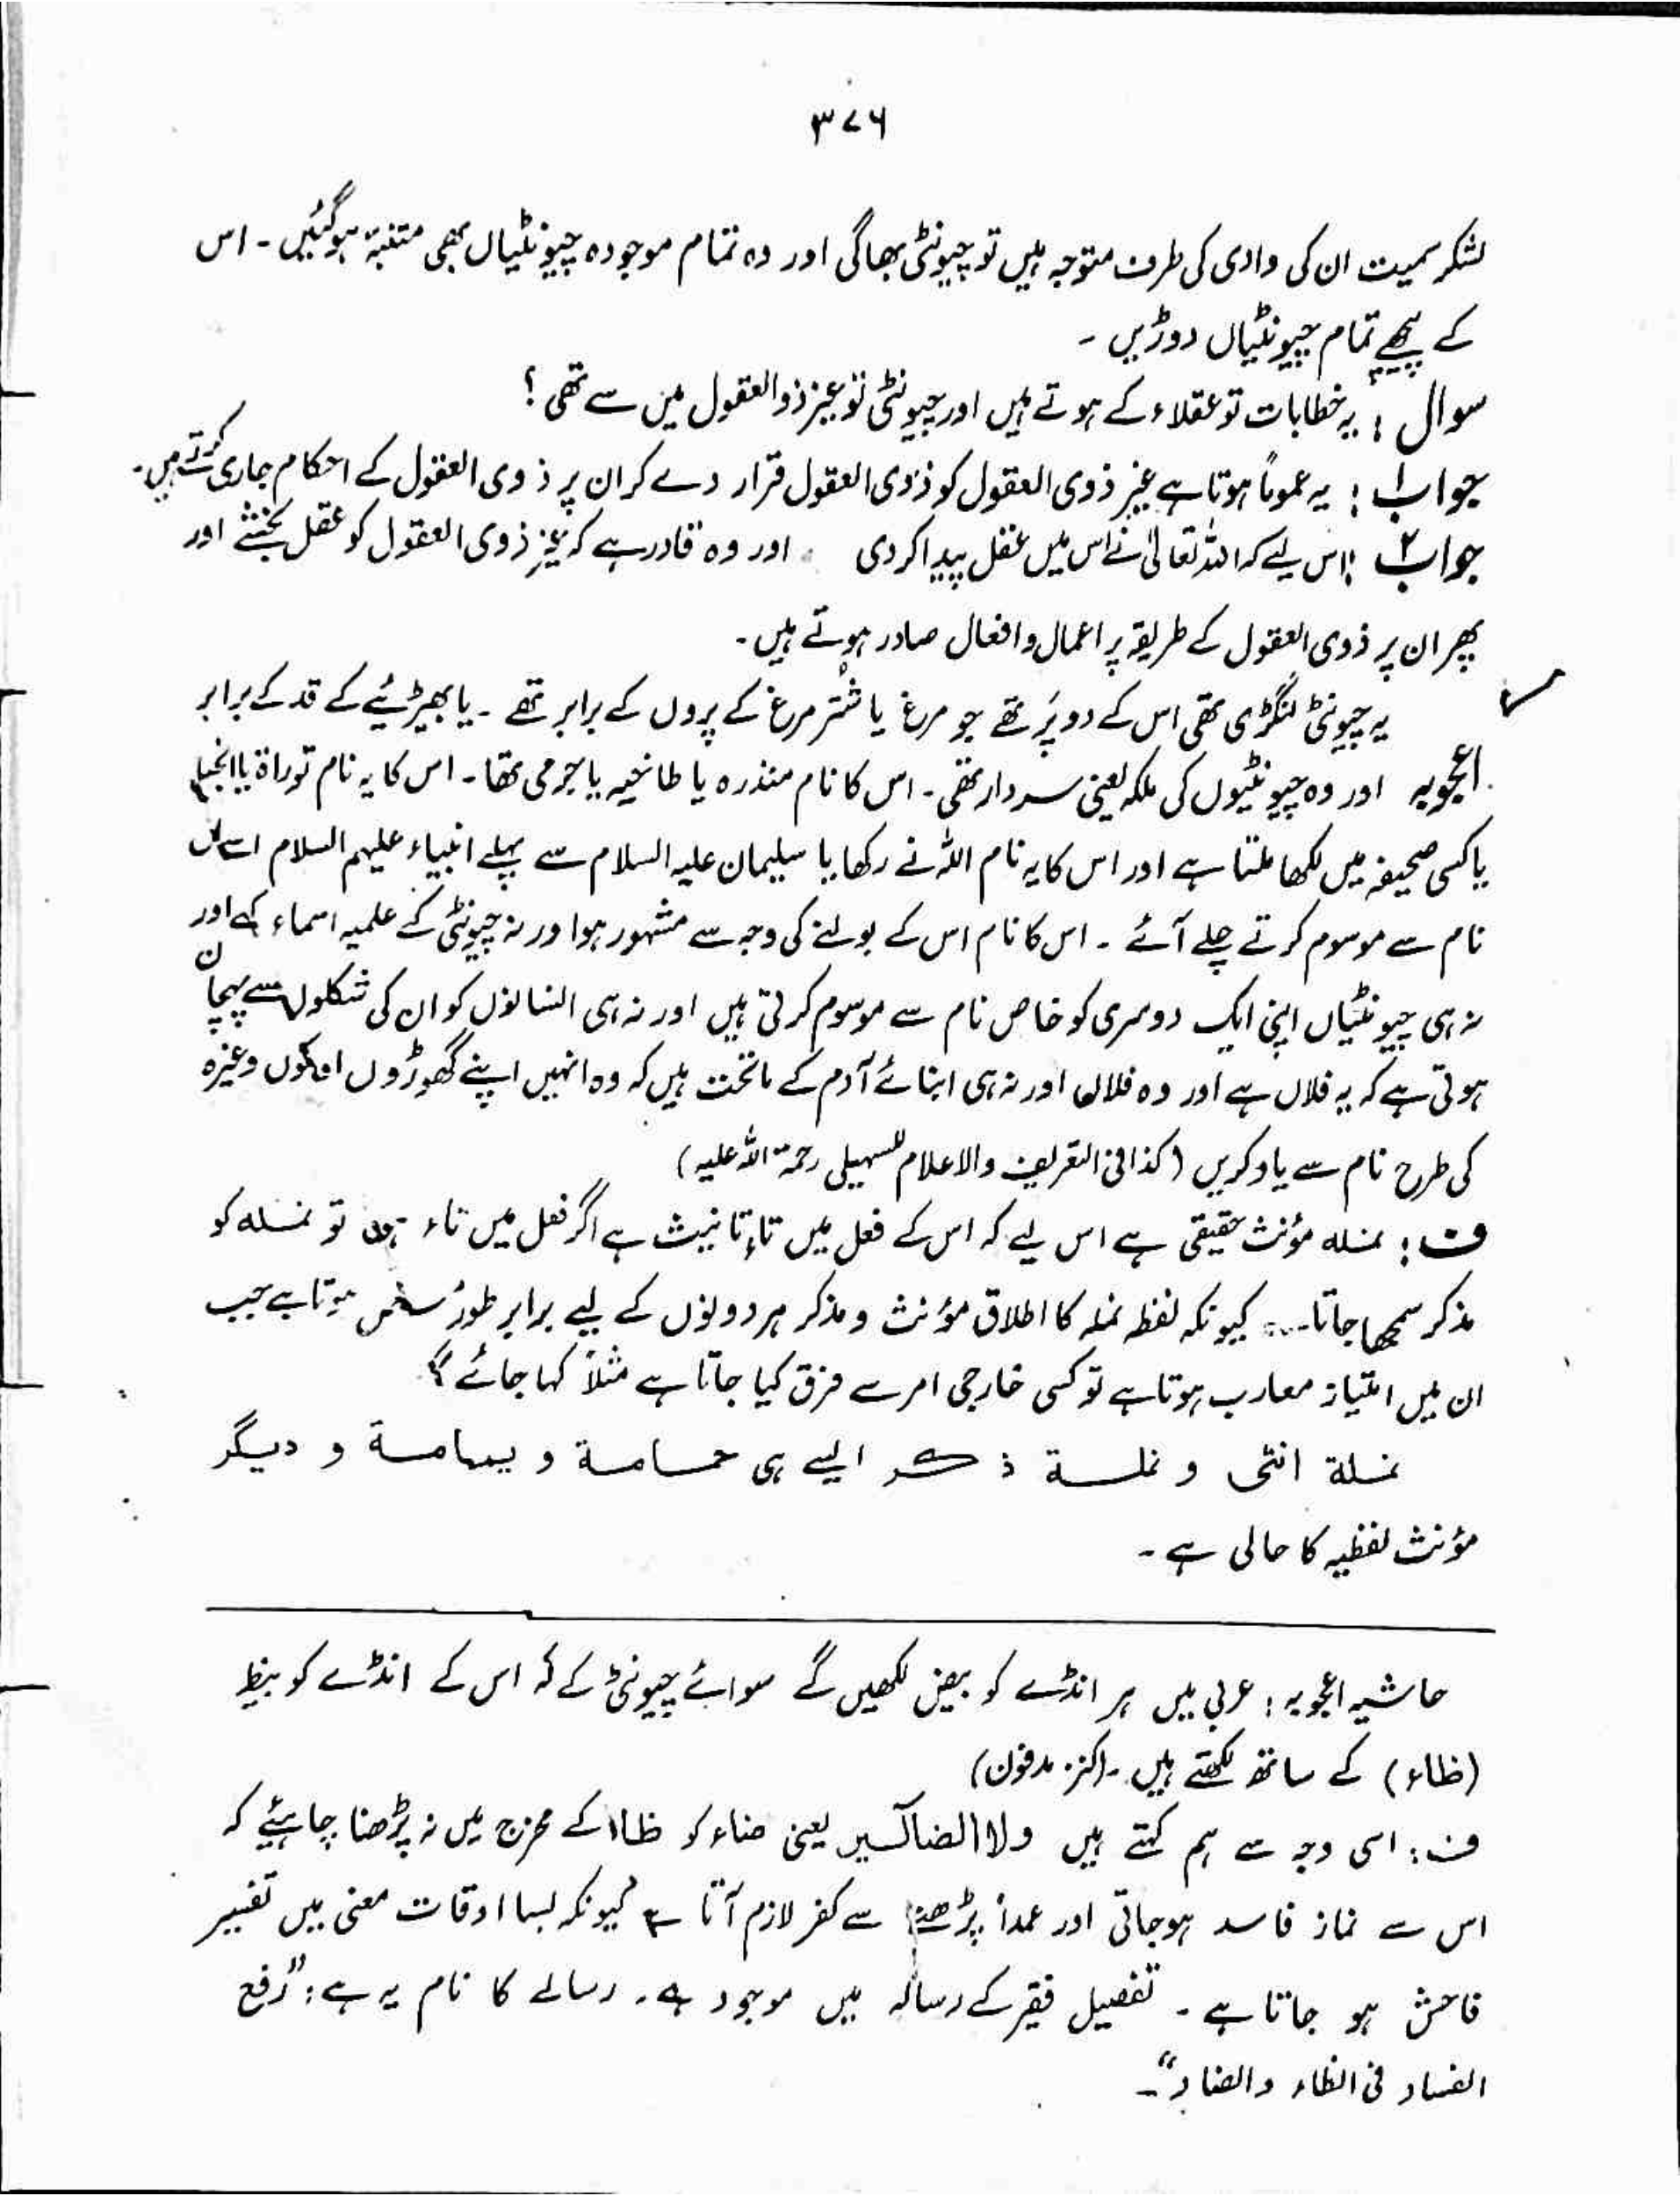 ۳۷۶
لشکر سمیت ان کی وادی کی طرف متوجہ ہیں تو چیونٹی بھاگی اور وہ تمام موجودہ چیونٹیاں بھی متنبہ ہوگئیں۔ اس
کے پیچھے تمام چیونٹیاں دوڑیں۔
سوال: یہ خطابات تو عقلاء کے ہوتے ہیں اور چیونٹی تو غیر ذوالعقول میں سے تھی؟
جواب ۱: یہ عموماً ہوتا ہے غیر ذوی العقول کو ذوی العقول قرار دے کر ان پر ذوی العقول کے احکام جاری کرتے ہیں۔
جواب ۲: اس لیے کہ اللہ تعالیٰ نے اس میں عقل پیدا کر دی اور وہ قادر ہے کہ غیر ذوی العقول کو عقل بخشے اور
پھر ان پر ذوی العقول کے طریقہ پر اعمال و افعال صادر ہوتے ہیں۔
یہ چیونٹی لنگڑی تھی اس کے دو پَر تھے جو مرغ یا شُتر مرغ کے پروں کے برابر تھے۔ یا بھیڑئیے کے قد کے برابر
اعجوبہ اور وہ چیونٹیوں کی ملکہ یعنی سردار تھی۔ اس کا نام منذرہ یا طاخیہ یا جرمی تھا۔ اس کا یہ نام توراۃ یا انجیل
یا کسی صحیفہ میں لکھا ملتا ہے اور اس کا یہ نام اللہ نے رکھا یا سلیمان علیہ السلام سے پہلے انبیاء علیہم السلام اسے اس
نام سے موسوم کرتے چلے آئے۔ اس کا نام اس کے بولنے کی وجہ سے مشہور ہوا ورنہ چیونٹی کے علمیہ اسماء کہاں اور
نہ ہی چیونٹیاں اپنی ایک دوسری کو خاص نام سے موسوم کرتی ہیں اور نہ ہی انسانوں کو ان کی شکلوں سے پہچان
ہوتی ہے کہ یہ فلاں ہے اور وہ فلاں اور نہ ہی ابنائے آدم کے ماتحت ہیں کہ وہ انہیں اپنے گھوڑوں وغیرہ
کی طرح نام سے یاد کریں (کذا فی التعریف والاعلام للسہیلی رحمۃ اللہ علیہ)
ف: نملہ مؤنث حقیقی ہے اس لیے کہ اس کے فعل میں تاءِ تانیث ہے اگر فعل میں تاء نہ ہوتی تو نملہ کو
مذکر سمجھا جاتا کیونکہ لفظ نملہ کا اطلاق مؤنث و مذکر ہر دونوں کے لیے برابر طور ہوتا ہے جب
ان میں امتیاز ہوتا ہے تو کسی خارجی امر سے فرق کیا جاتا ہے مثلاً کہا جائے گا
نملة انثی و نملة ذکر ایسے ہی حمامة و یمامة و دیگر
مؤنث لفظیہ کا حالی ہے۔
حاشیہ اعجوبہ: عربی میں ہر انڈے کو بیض لکھیں گے سوائے چیونٹی کے کہ اس کے انڈے کو بیظ
(ظاء) کے ساتھ لکھتے ہیں۔ (کنز مدفون)
ف: اسی وجہ سے ہم کہتے ہیں ولا الضالین یعنی ضاء کو ظاء کے مخرج میں نہ پڑھنا چاہئیے کہ
اس سے نماز فاسد ہوجاتی اور عمداً پڑھنے سے کفر لازم آتا ہے کیونکہ بسا اوقات معنی میں تغییر
فاحش ہو جاتا ہے۔ تفصیل فقیر کے رسالہ میں موجود ہے۔ رسالے کا نام یہ ہے: "رفع
الفساد فی الظاء والضاد"۔